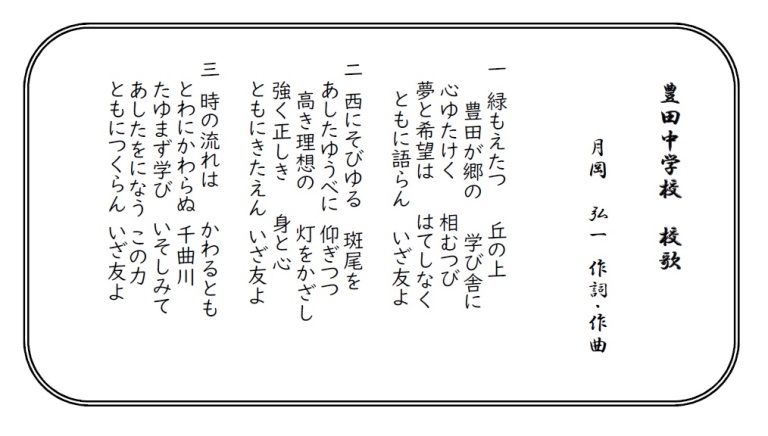 豊田中学校　校歌
月岡　弘一　作詞・作曲
一　緑もえたつ　丘の上
豊田が郷の　学び舎に
心ゆたけく　相むつび
夢と希望は　はてしなく
ともに語らん　いざ友よ
二　西にそびゆる　斑尾を
あしたゆうべに　仰ぎつつ
高き理想の　灯をかざし
強く正しき　身と心
ともにきたえん　いざ友よ
三　時の流れは　かわるとも
とわにかわらぬ　千曲川
たゆまず学び　いそしみて
あしたをになう　この力
ともにつくらん　いざ友よ